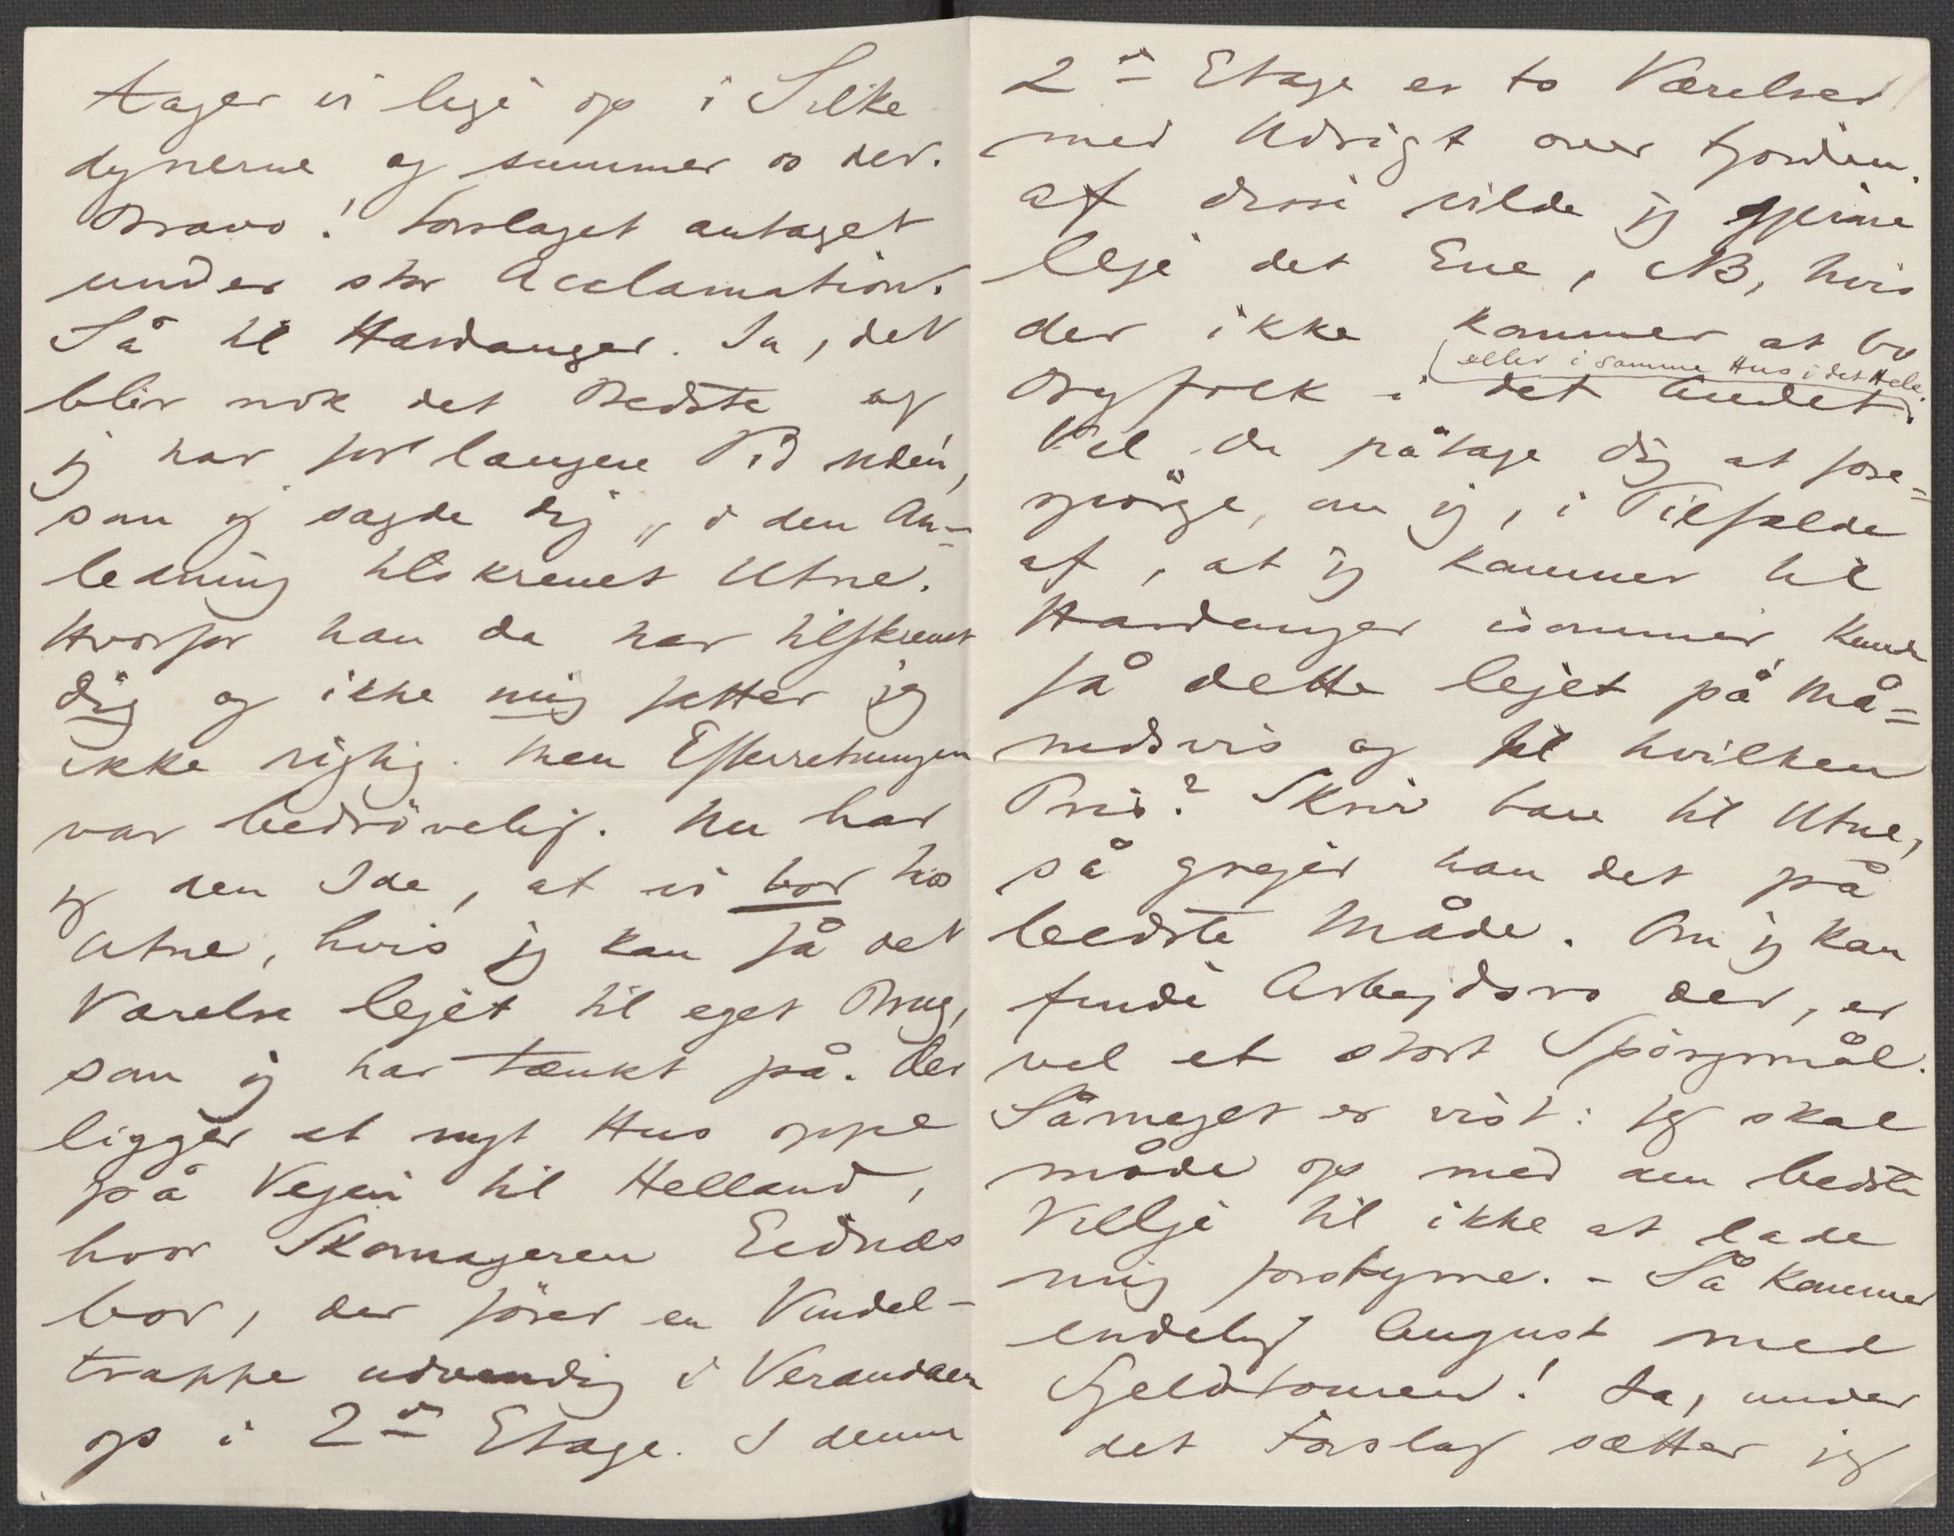 tager vi lige op i Silke
dynerne og summer os der.
Bravo! Forslaget antaget
under stor Acclamation.
Så til Hardanger. Ja, det
blir nok det Bedste og
jeg har for længere Tid siden,
som jeg sagde dig "i den An-
ledning tilskrevet Utne.
Hvorfor han da har tilskrevet
dig og ikke mig fatter jeg
ikke rigtig. Men Efterretningen
var bedrövelig. Nu har
jeg den Ide, at vi bor hos
Utne, hvis jeg kan få det
Værelse lejet til eget Brug,
som jeg har tænkt på. Der
ligger et nyt Hus oppe
på Vejen til Helland,
hvor Skomageren Eidnæs
bor, der förer en Vindel-
trappe udvendig i Verandaen
op i 2den Etage. I denne
2den Etage er to Værelser
med Udsigt over Fjorden.
Af disse vilde jeg gjerne
leje det Ene, NB, hvis
der ikke kommer at bo
eller i samme Hus i det Hele.
Byfolk i det Andet.
Vil du påtage dig at fore=
spörge, om jeg, i Tilfælde
af, at jeg kommer til
Hardanger isommer, kunde
få dette lejet på Må=
nedsvis og til hvilken
Pris? Skriv bare til Utne,
så grejer han det på
bedste Måde. Om jeg kan
finde Arbejdsro der, er
vel et stort Spörgsmål.
Såmeget er vist: jeg skal
möde op med den bedste
Vilje til ikke at lade
mig forstyrre. - Så kommer
endelig August med
Fjeldtouren! Ja, under
det Forslag sætter jeg